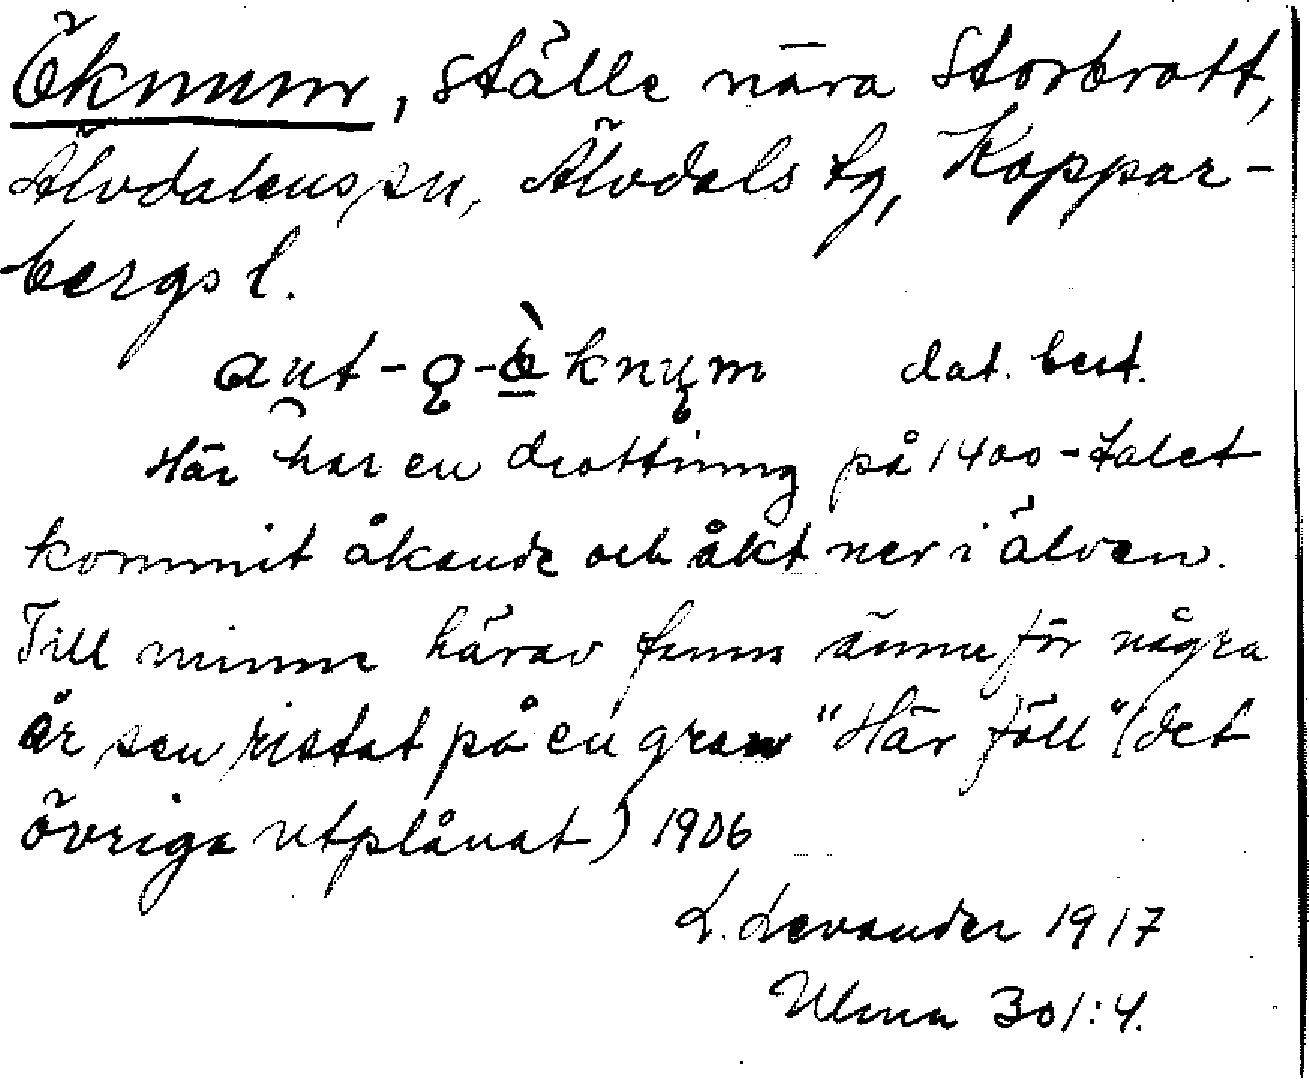 Öknum, ställe nära Storbrott,
Älvdalens sn, Älvdals tg, Koppar-
bergs l.
aut-ǫ-ὲknųm dat. best.
Här har en drottning på 1400-talet
kommit åkande och åkt ner i älven.
Till minne härav fanns ännu för några
år sen ristat på en gran "Här föll" (det
övriga utplånat) 1906
L. Levander 1917
Ulma 301:4.